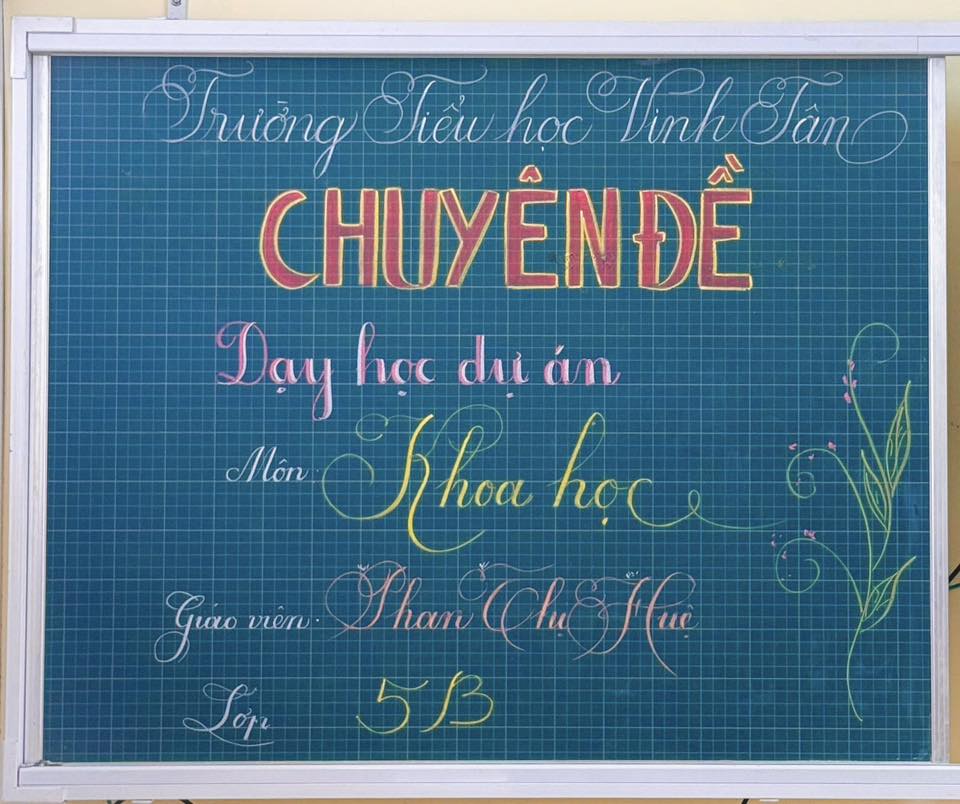 Trường Tiểu học Vinh Tân
CHUYÊN ĐỀ
Dạy học dự án
Môn: Khoa học
Giáo viên: Phan Thị Huệ
Lớp 5B